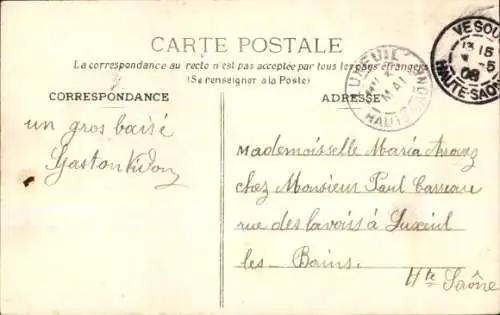 CARTE POSTALE
La correspondance au recto n'est pas acceptée par tous les pays étrangers
(Se renseigner à la Poste)
CORRESPONDANCE
ADRESSE
VESOUL
13 15
5
08
HAUTE-SAÔNE
LUXEUIL
MAI
HAUTE
un gros baisé
Gaston
Mademoisselle Maria
chez Monsieur Paul Carreau
rue des lavoirs à Luxeuil
les - Bains.
Hte Saône